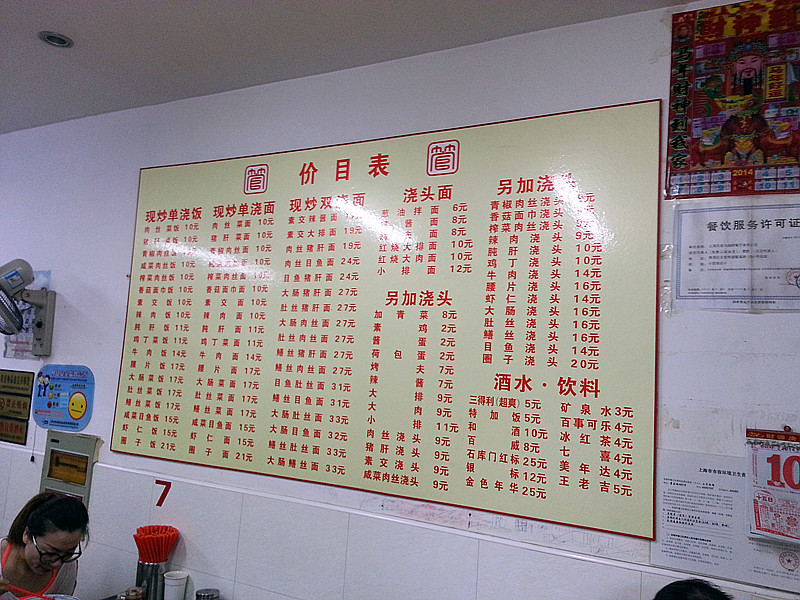 价目表
现炒单浇饭
肉丝菜饭 10元
猪肝菜饭 10元
青椒肉丝饭 10元
咸菜肉丝饭 10元
榨菜肉丝饭 10元
香菇面巾饭 10元
素交饭 10元
辣肉饭 10元
肫肝饭 11元
鸡丁菜饭 11元
牛肉饭 14元
腰片饭 17元
大肠菜饭 17元
肚丝菜饭 17元
鳝丝菜饭 17元
咸菜目鱼饭 15元
虾仁饭 15元
圈子饭 21元
现炒单浇面
肉丝菜面 10元
猪肝菜面 10元
青椒肉丝面 10元
咸菜肉丝面 10元
榨菜肉丝面 10元
香菇面巾面 10元
素交面 10元
辣肉面 10元
肫肝面 11元
鸡丁菜面 11元
牛肉面 14元
腰片面 17元
大肠菜面 17元
肚丝菜面 17元
鳝丝菜面 17元
咸菜目鱼面 15元
虾仁面 15元
圈子面 21元
现炒双浇面
素交辣酱面
素交大排面 19元
肉丝猪肝面 19元
肉丝目鱼面 24元
目鱼猪肝面 24元
大肠猪肝面 27元
大肠肉丝面 27元
肚丝肉丝面 27元
肚丝猪肝面 27元
鳝丝肉丝面 27元
鳝丝猪肝面 27元
目鱼大肠面 31元
目鱼肚丝面 31元
目鱼鳝丝面 31元
大肠肚丝面 33元
大肠鳝丝面 33元
肚丝鳝丝面 33元
浇头面
葱油拌面 6元
辣酱面 8元
大面 8元
红烧大排面 10元
红烧肉面 10元
小排面 12元
另加浇头
加青菜 8元
素鸡 2元
酱蛋 2元
荷包蛋 2元
烤夫 7元
辣酱 7元
大肉 9元
大排 9元
小排 11元
肉丝浇头 9元
猪肝浇头 9元
素交浇头 9元
咸菜肉丝浇头 9元
另加浇头
青椒肉丝浇头
香菇面巾浇头 9元
榨菜肉丝浇头 9元
辣肉浇头 9元
肫肝浇头 10元
鸡丁浇头 10元
牛肉浇头 14元
腰片浇头 16元
虾仁浇头 14元
大肠浇头 16元
肚丝浇头 16元
鳝丝浇头 16元
目鱼浇头 14元
圈子浇头 20元
酒水·饮料
三得利(超爽) 5元
特加饭 5元
和酒 10元
百威 8元
石库门红标 25元
银色年华 12元
金色年华 25元
矿泉水 3元
百事可乐 4元
冰红茶 4元
七喜 4元
美年达 4元
王老吉 5元
7
马年财神到我家
2014
餐饮服务许可证
10
十五日